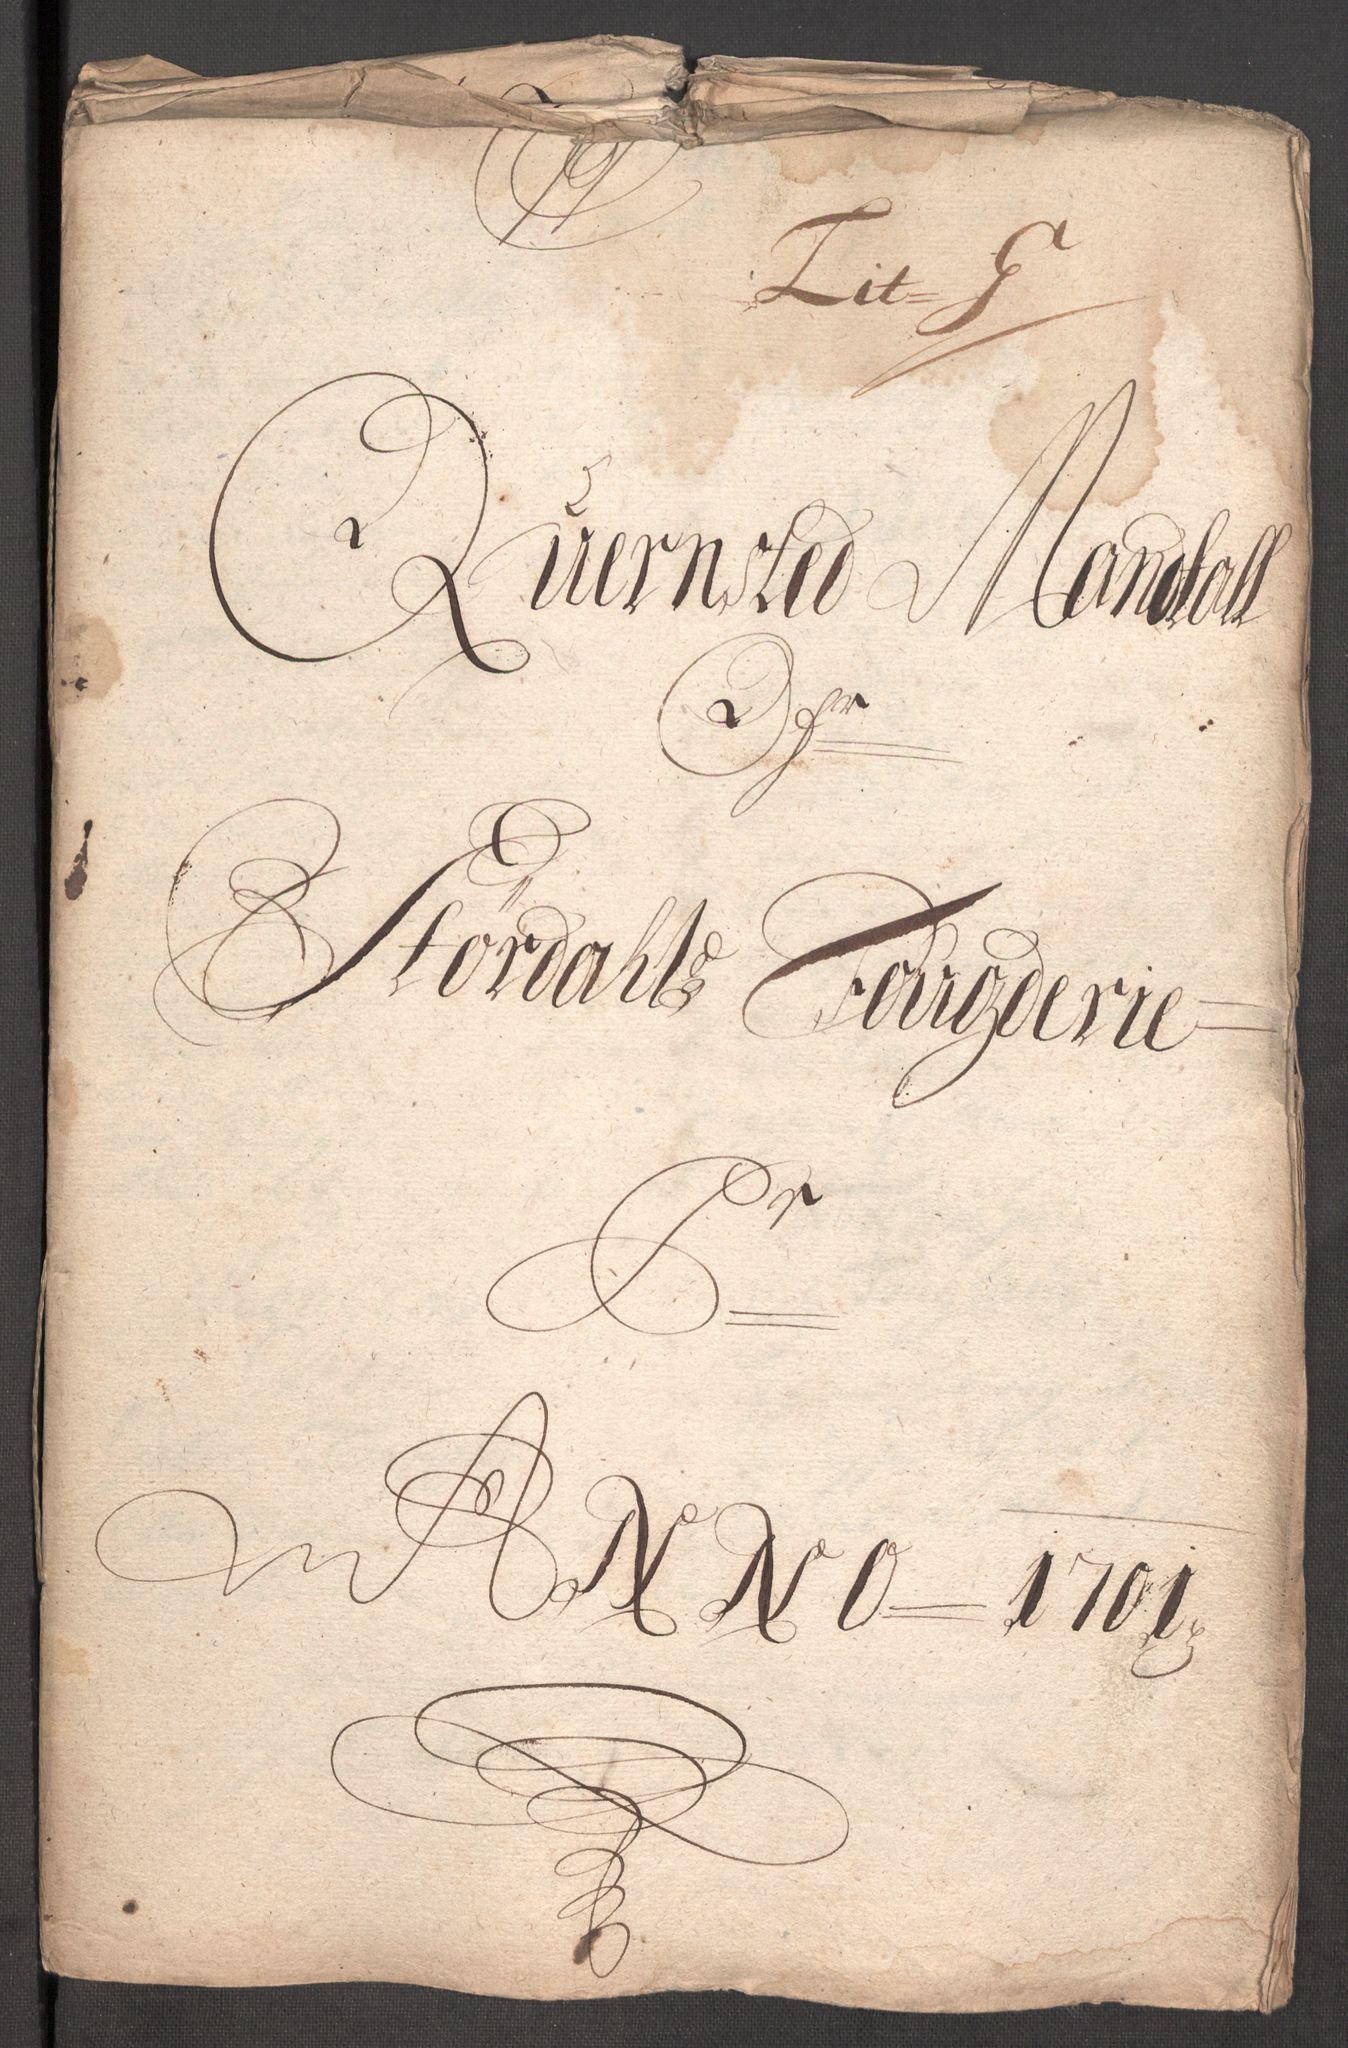 Lit= G
Quernsted Mandtall
Ofr
Stördahls Fougderie
Pr
ANNO 1701